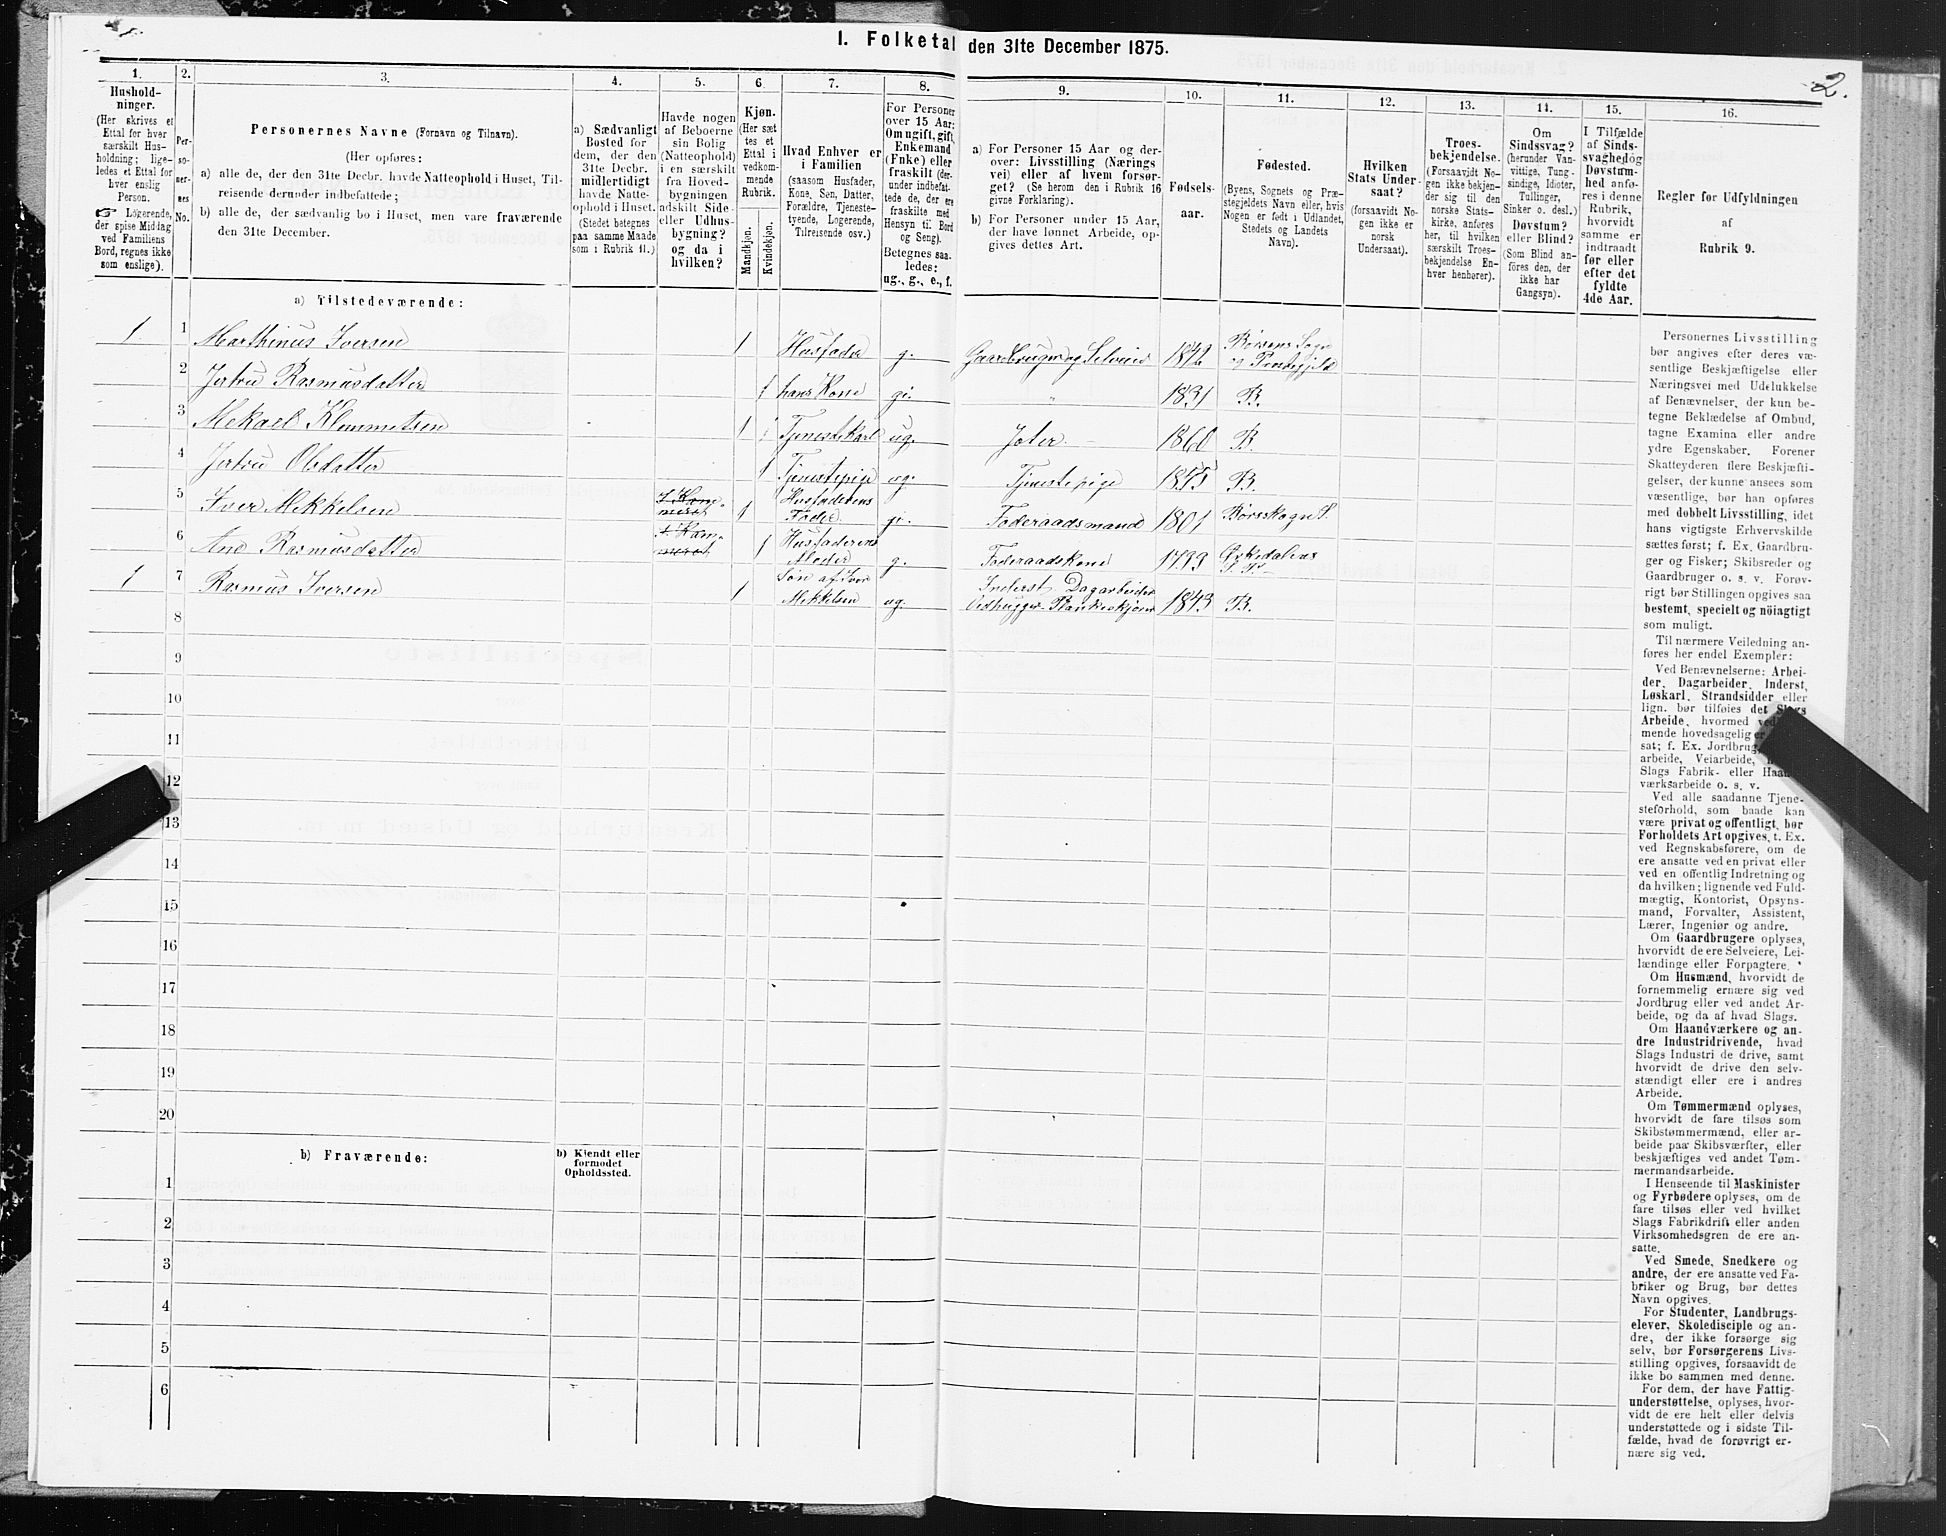 I. Folketal den 31te December 1875.
2.
1.
Hushold-
ninger.
(Her skrives et
Ettal for hver
særskilt Hus-
holdning; lige-
ledes et Ettal for
hver enslig
Person.
☞ Logerende,
der spise Middag
ved Familiens
Bord, regnes ikke
som enslige).
2.
Per-
so-
ner-
nes
No.
3.
Personernes Navne (Fornavn og Tilnavn).
(Her opføres:
a) alle de, der den 31te Decbr. havde Natteophold i Huset, Til-
reisende derunder indbefattede;
b) alle de, der sædvanlig bo i Huset, men vare fraværende
den 31te December.
4.
a) Sædvanligt
Bosted for
dem, der den
31te Decbr.
midlertidigt
havde Natte-
ophold i Huset.
(Stedet betegnes
paa samme Maade
som i Rubrik 11.)
5.
Havde nogen
af Beboerne
sin Bolig
(Natteophold)
i en særskilt
fra Hoved-
bygningen
adskilt Side-
eller Udhus-
bygning?
og da i
hvilken?
6.
Kjøn.
(Her sæt
tes et
Ettal i
vedkom-
mende
Rubrik.
Mandkjøn.
Kvindekjøn.
7.
Hvad Enhver er
i Familien
(saasom Husfader,
Kone, Søn, Datter,
Forældre, Tjeneste-
tyende, Logerende,
Tilreisende osv.)
8.
For Personer
over 15 Aar:
Om ugift, gift,
Enkemand
(Enke) eller
fraskilt (der-
under indbefat-
tede de, der ere
fraskilte med
Hensyn til Bord
og Seng).
Betegnes saa-
ledes:
ug., g., e., f.
9.
a) For Personer 15 Aar og der-
over: Livsstilling (Nærings
vei) eller af hvem forsør-
get? (Se herom den i Rubrik 16
givne Forklaring).
b) For Personer under 15 Aar,
der have lønnet Arbeide, op-
gives dettes Art.
10.
Fødsels-
aar.
11.
Fødested.
(Byens, Sognets og Præ-
stegjeldets Navn eller, hvis
Nogen er født i Udlandet,
Stedets og Landets
Navn).
12.
Hvilken
Stats Under-
saat?
(forsaavidt No-
gen ikke er
norsk
Undersaat).
13.
Troes-
bekjendelse.
(Forsaavidt No-
gen ikke bekjen-
der sig til den
norske Stats-
kirke, anføres
her, til hvilken
særskilt Troes-
bekjendelse En-
hver henhører).
14.
Om
Sindssvag?
(herunder Van-
vittige, Tung-
sindige, Idioter,
Tullinger,
Sinker o. desl.)
Døvstum?
eller Blind?
(Som Blind an-
føres den, der
ikke har
Gangsyn).
15.
I Tilfælde
af Sinds-
svaghed og
Døvstum-
hed anfø-
res i denne
Rubrik,
hvorvidt
samme er
indtraadt
før eller
efter det
fyldte
4de Aar.
16.
Regler for Udfyldningen
af
Rubrik 9.
a) Tilstedeværende:
1 1 Marthinus Iversen 1 Husfader g. Gaardbruger og Selveier 1842 Børsens Sogn
og Prestegjeld
2 Jertru Rasmusdatter 1 hans Kone gi. " 1831 B.
3 Mekael Klemmetsen 1 Tjenestekarl ug. 1860 B.
4 Jertru Olsdatter 1 Tjenestepige ug. Tjenestepige 1855 B.
5 Iver Mekkelsen I Kam-
meret 1 Husfaderens
Fader gi. Føderaadsmand 1801
6 Ane Rasmusdatter I Kam-
meret 1 Husfaderens
Moder g. Føderaadskone 1799 Ørkedalens
1 7 Rasmus Iversen 1 Søn af Iver
Mekkelsen ug. Inderst Dagarbeider
Vedhugger Plankeskjører 1843 B.
8
9
10
11
12
13
14
15
16
17
18
19
20
b) Fraværende:
b) Kjendt eller
formodet
Opholdssted.
1
2
3
4
5
6
Personernes Livsstilling
bør angives efter deres væ-
sentlige Beskjæftigelse eller
Næringsvei med Udelukkelse
af Benævnelser, der kun be-
tegne Beklædelse af Ombud,
tagne Examina eller andre
ydre Egenskaber. Forener
Skatteyderen flere Beskjæfti-
gelser, der kunne ansees som
væsentlige, bør han opføres
med dobbelt Livsstilling, idet
hans vigtigste Erhvervskilde
sættes først; f. Ex. Gaardbru-
ger og Fisker; Skibsreder og
Gaardbruger o. s. v. Forøv-
rigt bør Stillingen opgives saa
bestemt, specielt og nöiagtigt
som muligt.
Til nærmere Veiledning an-
føres her endel Exempler:
Ved Benævnelserne: Arbei-
der, Dagarbeider, Inderst,
Løskarl, Strandsidder eller
lign. bør tilføies det Slags
Arbeide, hvormed
mende hovedsagelig er
sat; f. Ex. Jordbrug,
arbeide, Veiarbeide,
Slags Fabrik- eller
værksarbeide o. s. v.
Ved alle saadanne Tjene-
steforhold, som baade kan
være privat og offentligt, bør
Forholdets Art opgives, t. Ex.
ved Regnskabsførere, om de
ere ansatte ved en privat eller
ved en offentlig Indretning og
da hvilken; lignende ved Fuld-
mægtig, Kontorist, Opsyns-
mand, Forvalter, Assistent,
Lærer, Ingeniør og andre.
Om Gaardbrugere oplyses,
hvorvidt de ere Selveiere, Lei-
lændinge eller Forpagtere.
Om Husmænd, hvorvidt de
fornemmelig ernære sig ved
Jordbrug eller ved andet Ar-
beide, og da af hvad Slags.
Om Haandværkere og an-
dre Industridrivende, hvad
Slags Industri de drive, samt
hvorvidt de drive den selv-
stændigt eller ere i andres
Arbeide.
Om Tømmermænd oplyses,
hvorvidt de fare tilsøs som
Skibstømmermænd, eller ar-
beide paa Skibsværfter, eller
beskjæftiges ved andet Tøm-
mermandsarbeide.
I Henseende til Maskinister
og Fyrbødere oplyses, om de
fare tilsøs eller ved hvilket
Slags Fabrikdrift eller anden
Virksomhedsgren de ere an-
satte.
Ved Smede, Snedkere og
andre, der ere ansatte ved Fa-
briker og Brug, bør dettes
Navn opgives.
For Studenter, Landbrugs-
elever, Skoledisciple og an-
dre, der ikke forsørge sig
selv, bør Forsørgerens Livs-
stilling opgives, forsaavidt de
ikke bo sammen med denne.
For dem, der have Fattig-
understøttelse, oplyses, hvor-
vidt de ere helt eller delvis
understøttede og i sidste Til-
fælde, hvad de forøvrigt er-
nære sig ved.